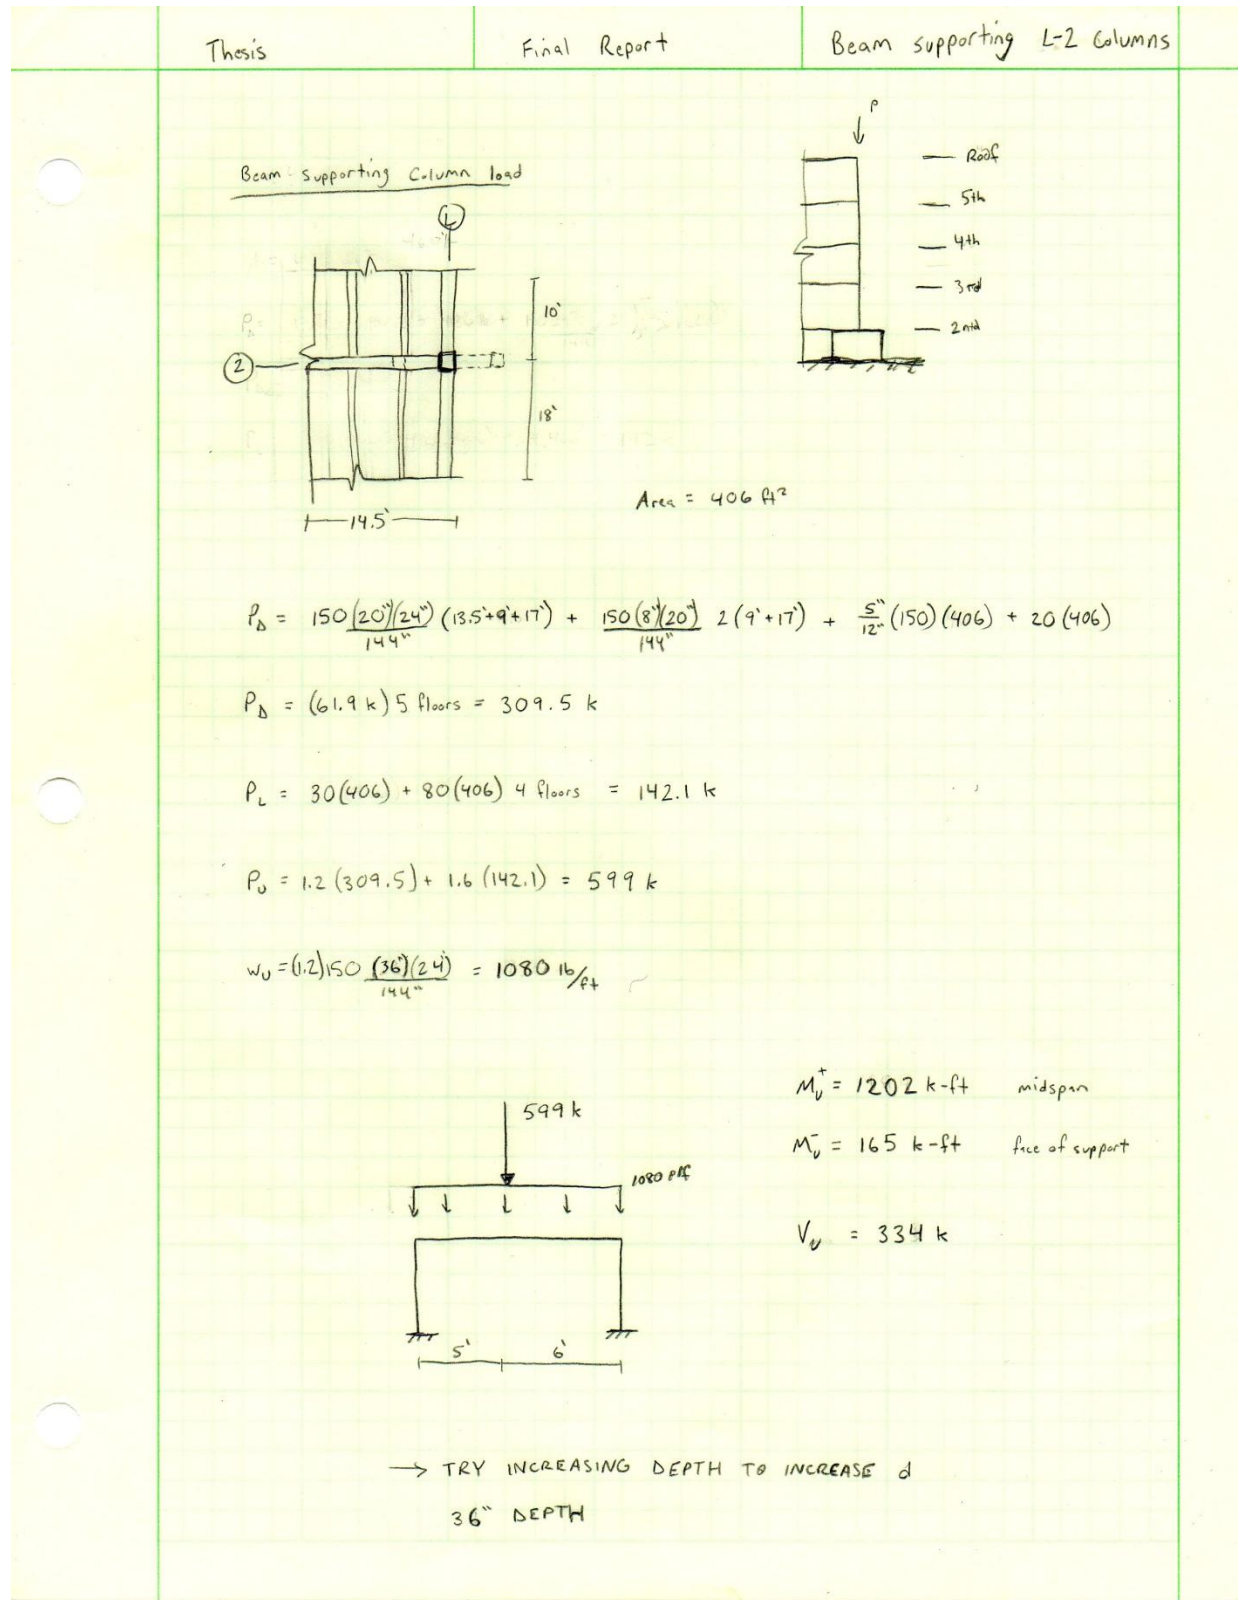 Thesis
Final Report
Beam supporting L-2 Columns
P
Roof
5th
4th
3rd
2nd
Beam supporting Column load
L
10'
2
18'
14.5'
Area = 406 ft²
P_D = 150(20")(24")/144" (13.5'+9'+17') + 150(8")(20")/144" 2(9'+17') + 5"/12" (150)(406) + 20(406)
P_D = (61.9 k) 5 floors = 309.5 k
P_L = 30(406) + 80(406) 4 floors = 142.1 k
P_U = 1.2 (309.5) + 1.6 (142.1) = 599 k
w_U = (1.2)150 (36")(24")/144" = 1080 lb/ft
M_U^+ = 1202 k-ft midspan
M_U^- = 165 k-ft face of support
V_U = 334 k
599 k
1080 plf
5'
6'
→ TRY INCREASING DEPTH TO INCREASE d
36" DEPTH